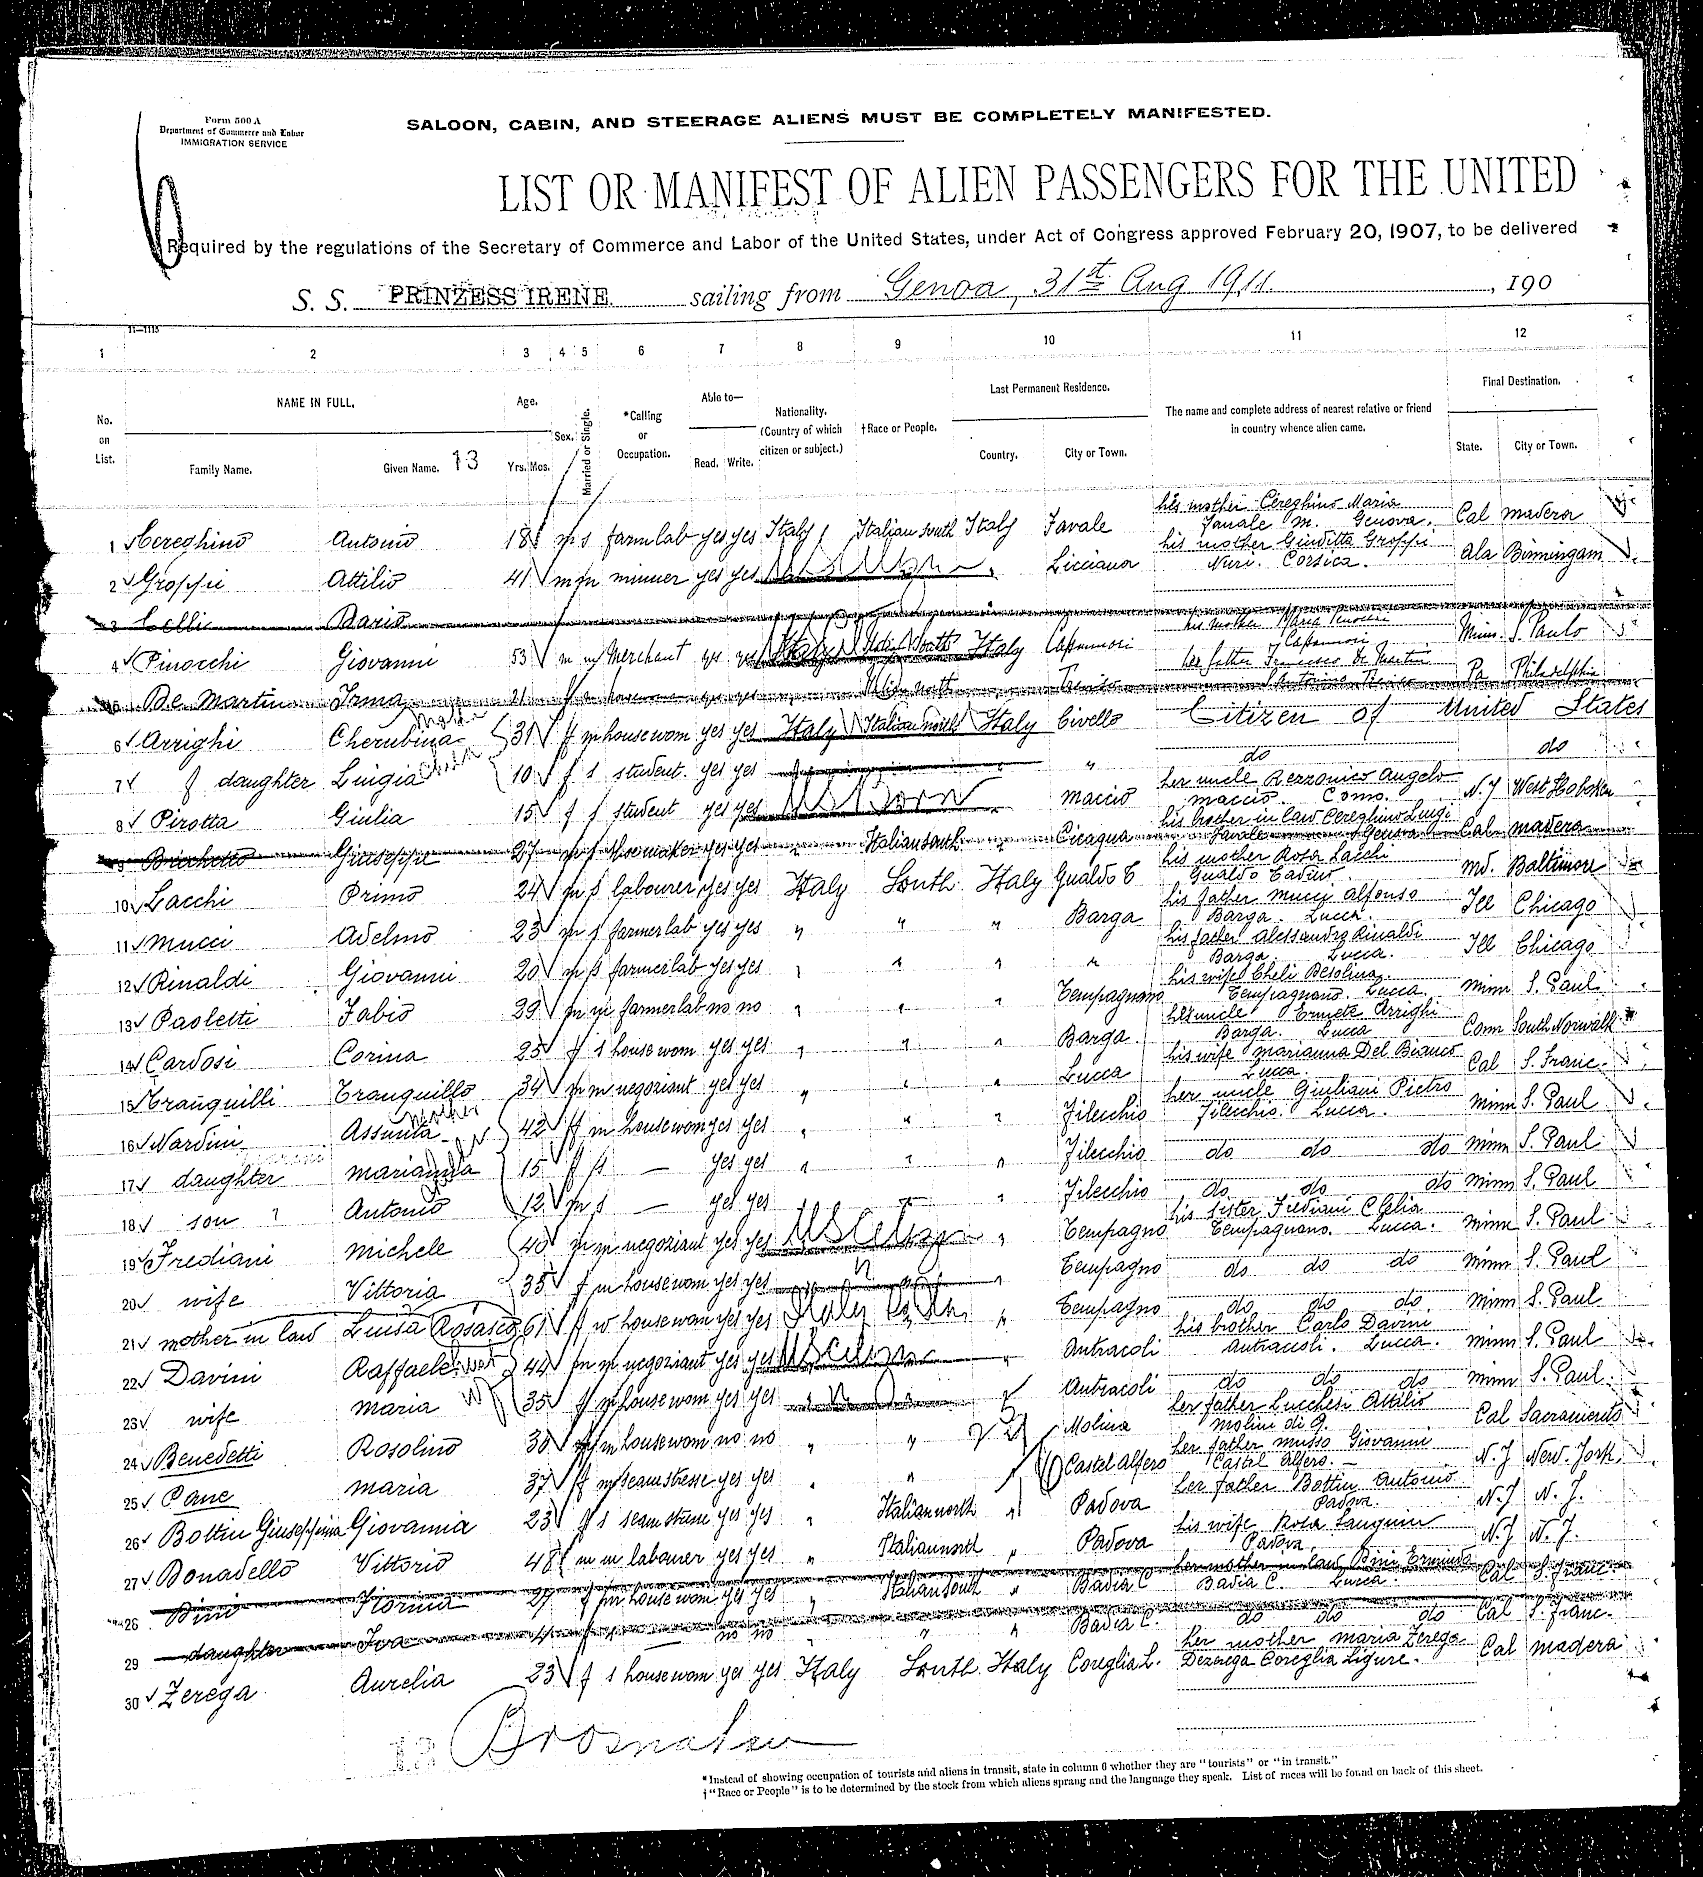 Form 500 A
Department of Commerce and Labor
IMMIGRATION SERVICE
SALOON, CABIN, AND STEERAGE ALIENS MUST BE COMPLETELY MANIFESTED.
LIST OR MANIFEST OF ALIEN PASSENGERS FOR THE UNITED
Required by the regulations of the Secretary of Commerce and Labor of the United States, under Act of Congress approved February 20, 1907, to be delivered
S. S. PRINZESS IRENE sailing from Genoa, 31st Aug 1911, 190
11—1115
1 2 3 4 5 6 7 8 9 10 11 12
No. on List.
NAME IN FULL.
Family Name. Given Name. 13
Age.
Yrs. Mos.
Sex.
Married or Single.
*Calling or Occupation.
Able to—
Read. Write.
Nationality. (Country of which citizen or subject.)
†Race or People.
Last Permanent Residence.
Country. City or Town.
The name and complete address of nearest relative or friend in country whence alien came.
Final Destination.
State. City or Town.
his mother Cereghino Maria
1 Cereghino Antonio 18 m s farm lab yes yes Italy Italian south Italy Favale Favale M. Genova. Cal madera
his mother Giuditta Groppi
2 Groppi Attilio 41 m m minner yes yes Licciana Corsica. Ala Birmingam
3 Celli Dario
4 Pinocchi Giovanni 53 m Merchant yes yes Italy Capannori Capannori Minn S. Paulo
her father Francesco De Martin
5 De Martin Irma 21 f yes yes north Pa Philadelphia
6 Arrighi Cherubina mother 31 f m house wom yes yes Italy Italian north Italy Civello Citizen of United States
7 daughter Luigia 10 f s student yes yes " do do
her uncle Rezzonico Angelo
8 Pirotta Giulia 15 f s student yes yes US Born Maccio Maccio. Como. N.J West Hoboken
his brother in law Cereghino Luigi
9 Giuseppe 27 m s shoemaker yes yes " Italian south " Cicagna Favale Genova Cal madera
his mother Rosa Lacchi
10 Lacchi Primo 24 m s labourer yes yes Italy South Italy Gualdo T Gualdo Tadino. Md. Baltimore
his father Mucci Alfonso
11 Mucci Adelmo 23 m s farmer lab yes yes " " " Barga Barga. Lucca. Ill Chicago
his father Alessandro Rinaldi
12 Rinaldi Giovanni 20 m s farmer lab yes yes " " " " Barga. Lucca. Ill Chicago
his wife Cheli Besolina
13 Paoletti Fabio 39 m m farmer lab no no " " " Tempagnano Tempagnano. Lucca. Minn S. Paul
her uncle Arrighi
14 Cardosi Corina 25 f s house wom yes yes " " " Barga. Barga. Lucca Conn South Norwalk
his wife Marianna Del Bianco
15 Tranquilli Tranquillo 34 m m negoziant yes yes " " " Lucca Lucca. Cal S. Franc.
her uncle Giuliani Pietro
16 Nardini Assunta mother 42 f m house wom yes yes " " " Filecchio Filecchio. Lucca. Minn S. Paul
17 daughter Marianna 15 f s — yes yes " " " Filecchio do do do Minn S. Paul
18 son Antonio 12 m s — yes yes " " Filecchio do do do Minn S. Paul
his sister Frediani Clelia
19 Frediani Michele 40 m m negoziant yes yes US Citizen " Tempagno Tempagnano. Lucca. Minn S. Paul
20 wife Vittoria 35 f m house wom yes yes " Tempagno do do do Minn S. Paul
21 mother in law Luisa Rosasco 61 f w house wom yes yes Italy South " Tempagno do do do Minn S. Paul
his brother Carlo Davini
22 Davini Raffaele 44 m m negoziant yes yes US Citizen " Antracoli Antracoli. Lucca. Minn S. Paul
23 wife Maria wife 35 f m house wom yes yes Antracoli do do do Minn S. Paul
her father Lucchesi Attilio
24 Benedetti Rosolino 30 m house wom no no " " Molina Molini di Q. Cal Sacramento
her father Musso Giovanni
25 Cane Maria 37 f m seamstresse yes yes " " Castel Alfero Castel Alfero. N.J New. York.
her father Bottin Antonio
26 Bottin Giuseppina Giovannia 23 f s yes yes " Italian north " Padova Padova. N.J N. J.
his wife Rosa Sanguin
27 Bonadello Vittorio 48 m m labourer yes yes " Italian north " Padova Padova. N.J N. J.
her mother in law Bini Erminda
28 Bini Fiorina 27 f m house wom yes yes " Italian south " Badia C Badia C. Lucca. Cal S. Franc.
29 daughter Iva 4 f s — no no " " Badia C. do do do Cal S. Franc.
her mother Maria Zerega
30 Zerega Aurelia 23 f s house wom yes yes Italy South Italy Coreglia L. Dezerega Coreglia Ligure. Cal madera
13 Brosnahan
*Instead of showing occupation of tourists and aliens in transit, state in column 6 whether they are "tourists" or "in transit."
†"Race or People" is to be determined by the stock from which aliens sprang and the language they speak. List of races will be found on back of this sheet.